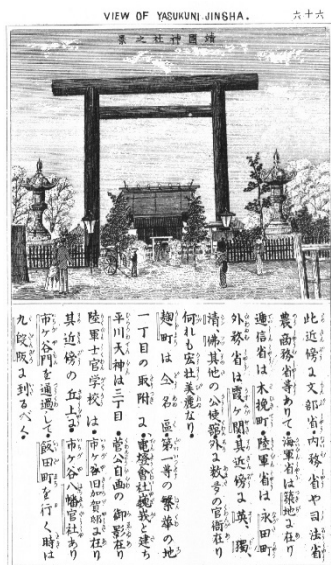 VIEW OF YASUKUNI.JINSHA.
六十六
靖國神社之景
此近傍に文部省・内務省や司法省
農商務省等ありて・海軍省は築地に在り
逓信省は木挽町・陸軍省は永田町
外務省は霞ヶ關其近傍に英、獨、
清、佛、其他の公使館外に数多の官衙在り
何れも宏壮美麗なり・
麹町は全區第一等の繁華の地
一丁目の取附に・東京會社巍我と建ち
平川天神は三丁目・菅公自画の御影在り
陸軍士官学校は・市ヶ谷旧加賀邸に在り
其近傍の丘上に・市ヶ谷八幡宮社あり
市ヶ谷門を通過して・飯田町を行く時は
九段阪に到るべく・